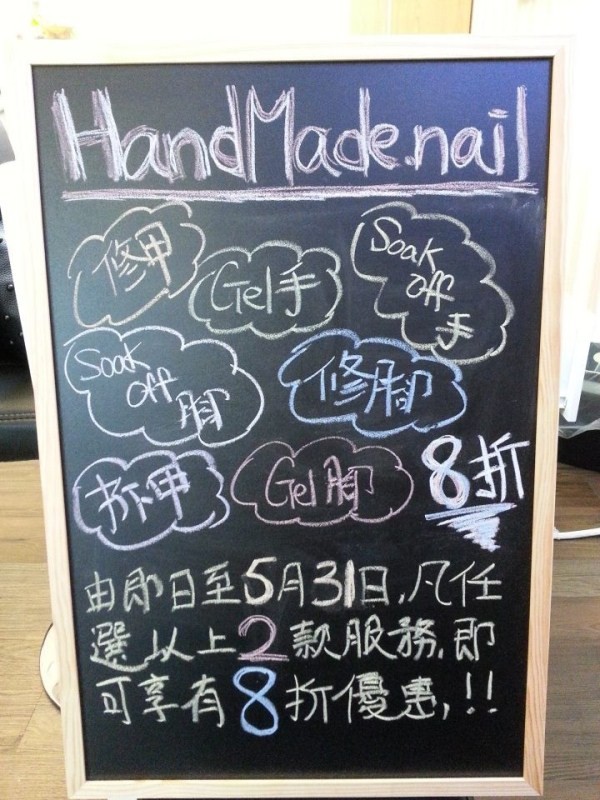 HandMade.nail
修甲
Gel手
Soak
off
手
Soak
off
脚
修脚
拆甲
Gel脚
8折
由即日至5月31日,凡任
選以上2款服務,即
可享有8折優惠,!!